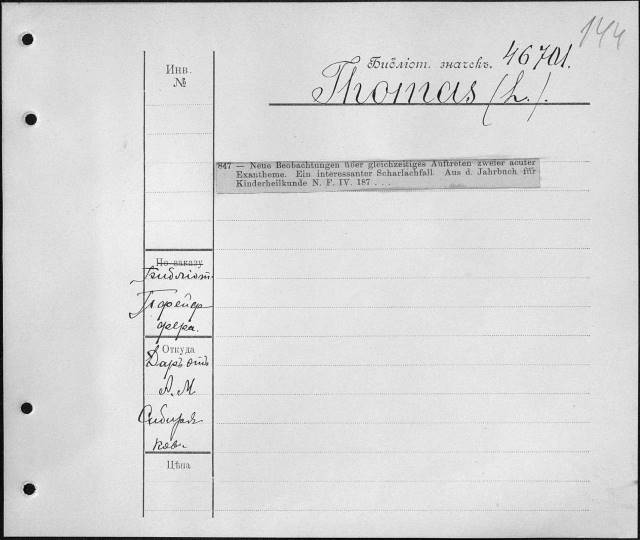 144
Инв.
№
Библіот. значекъ. 46701.
Thomas (L.).
847 — Neue Beobachtungen über gleichzeitiges Auftreten zweier acuter
Exantheme. Ein interessanter Scharlachfall. Aus d. Jahrbuch für
Kinderheilkunde N. F. IV. 187 . . .
По заказу
Библіот.
Пфейф
фера.
Откуда
Даръ отъ
А. М
Сибиря
ков.
Цѣна